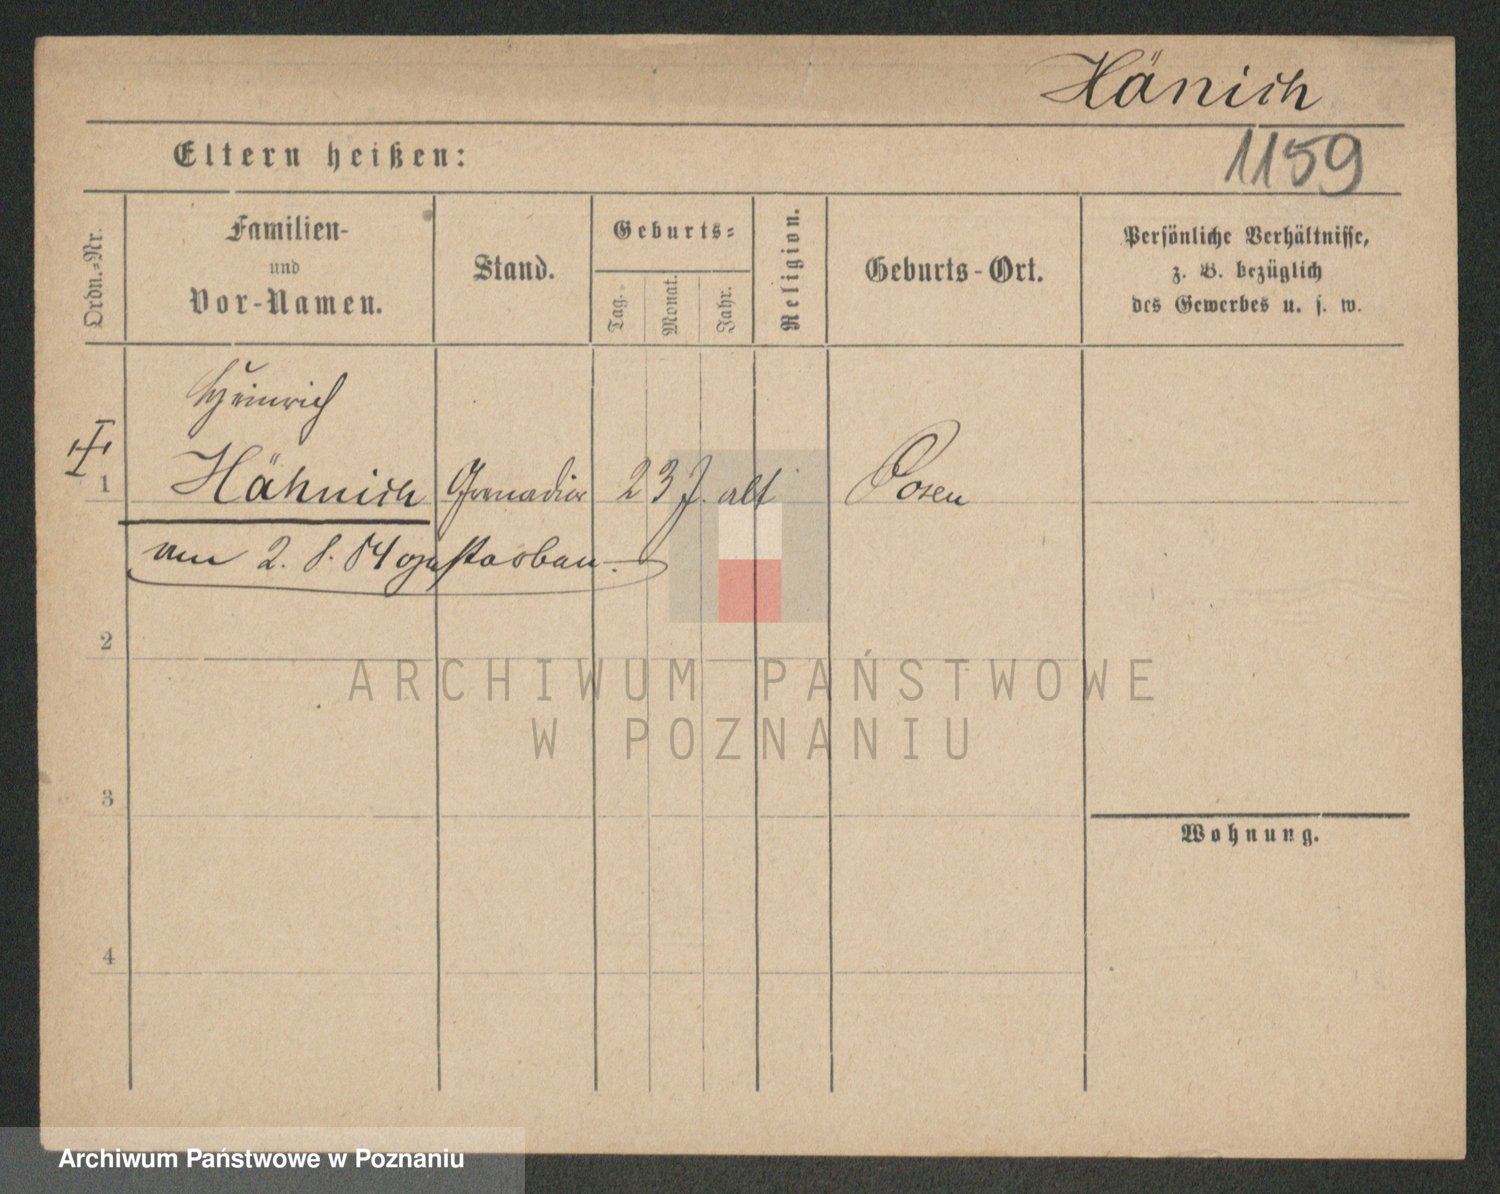 Hänich
1159
Eltern heißen:
Ordn.-Nr.
Familien-
und
Vor-Namen.
Stand.
Geburts-
Tag.
Monat.
Jahr.
Religion.
Geburts-Ort.
Persönliche Verhältnisse,
z. B. bezüglich
des Gewerbes u. s. w.
Heinrich
1 Hähnich Grenadier 23 J. alt Posen
am 2. 8. 84 gestorben.
2
ARCHIWUM PAŃSTWOWE
W POZNANIU
3
Wohnung.
4
Archiwum Państwowe w Poznaniu